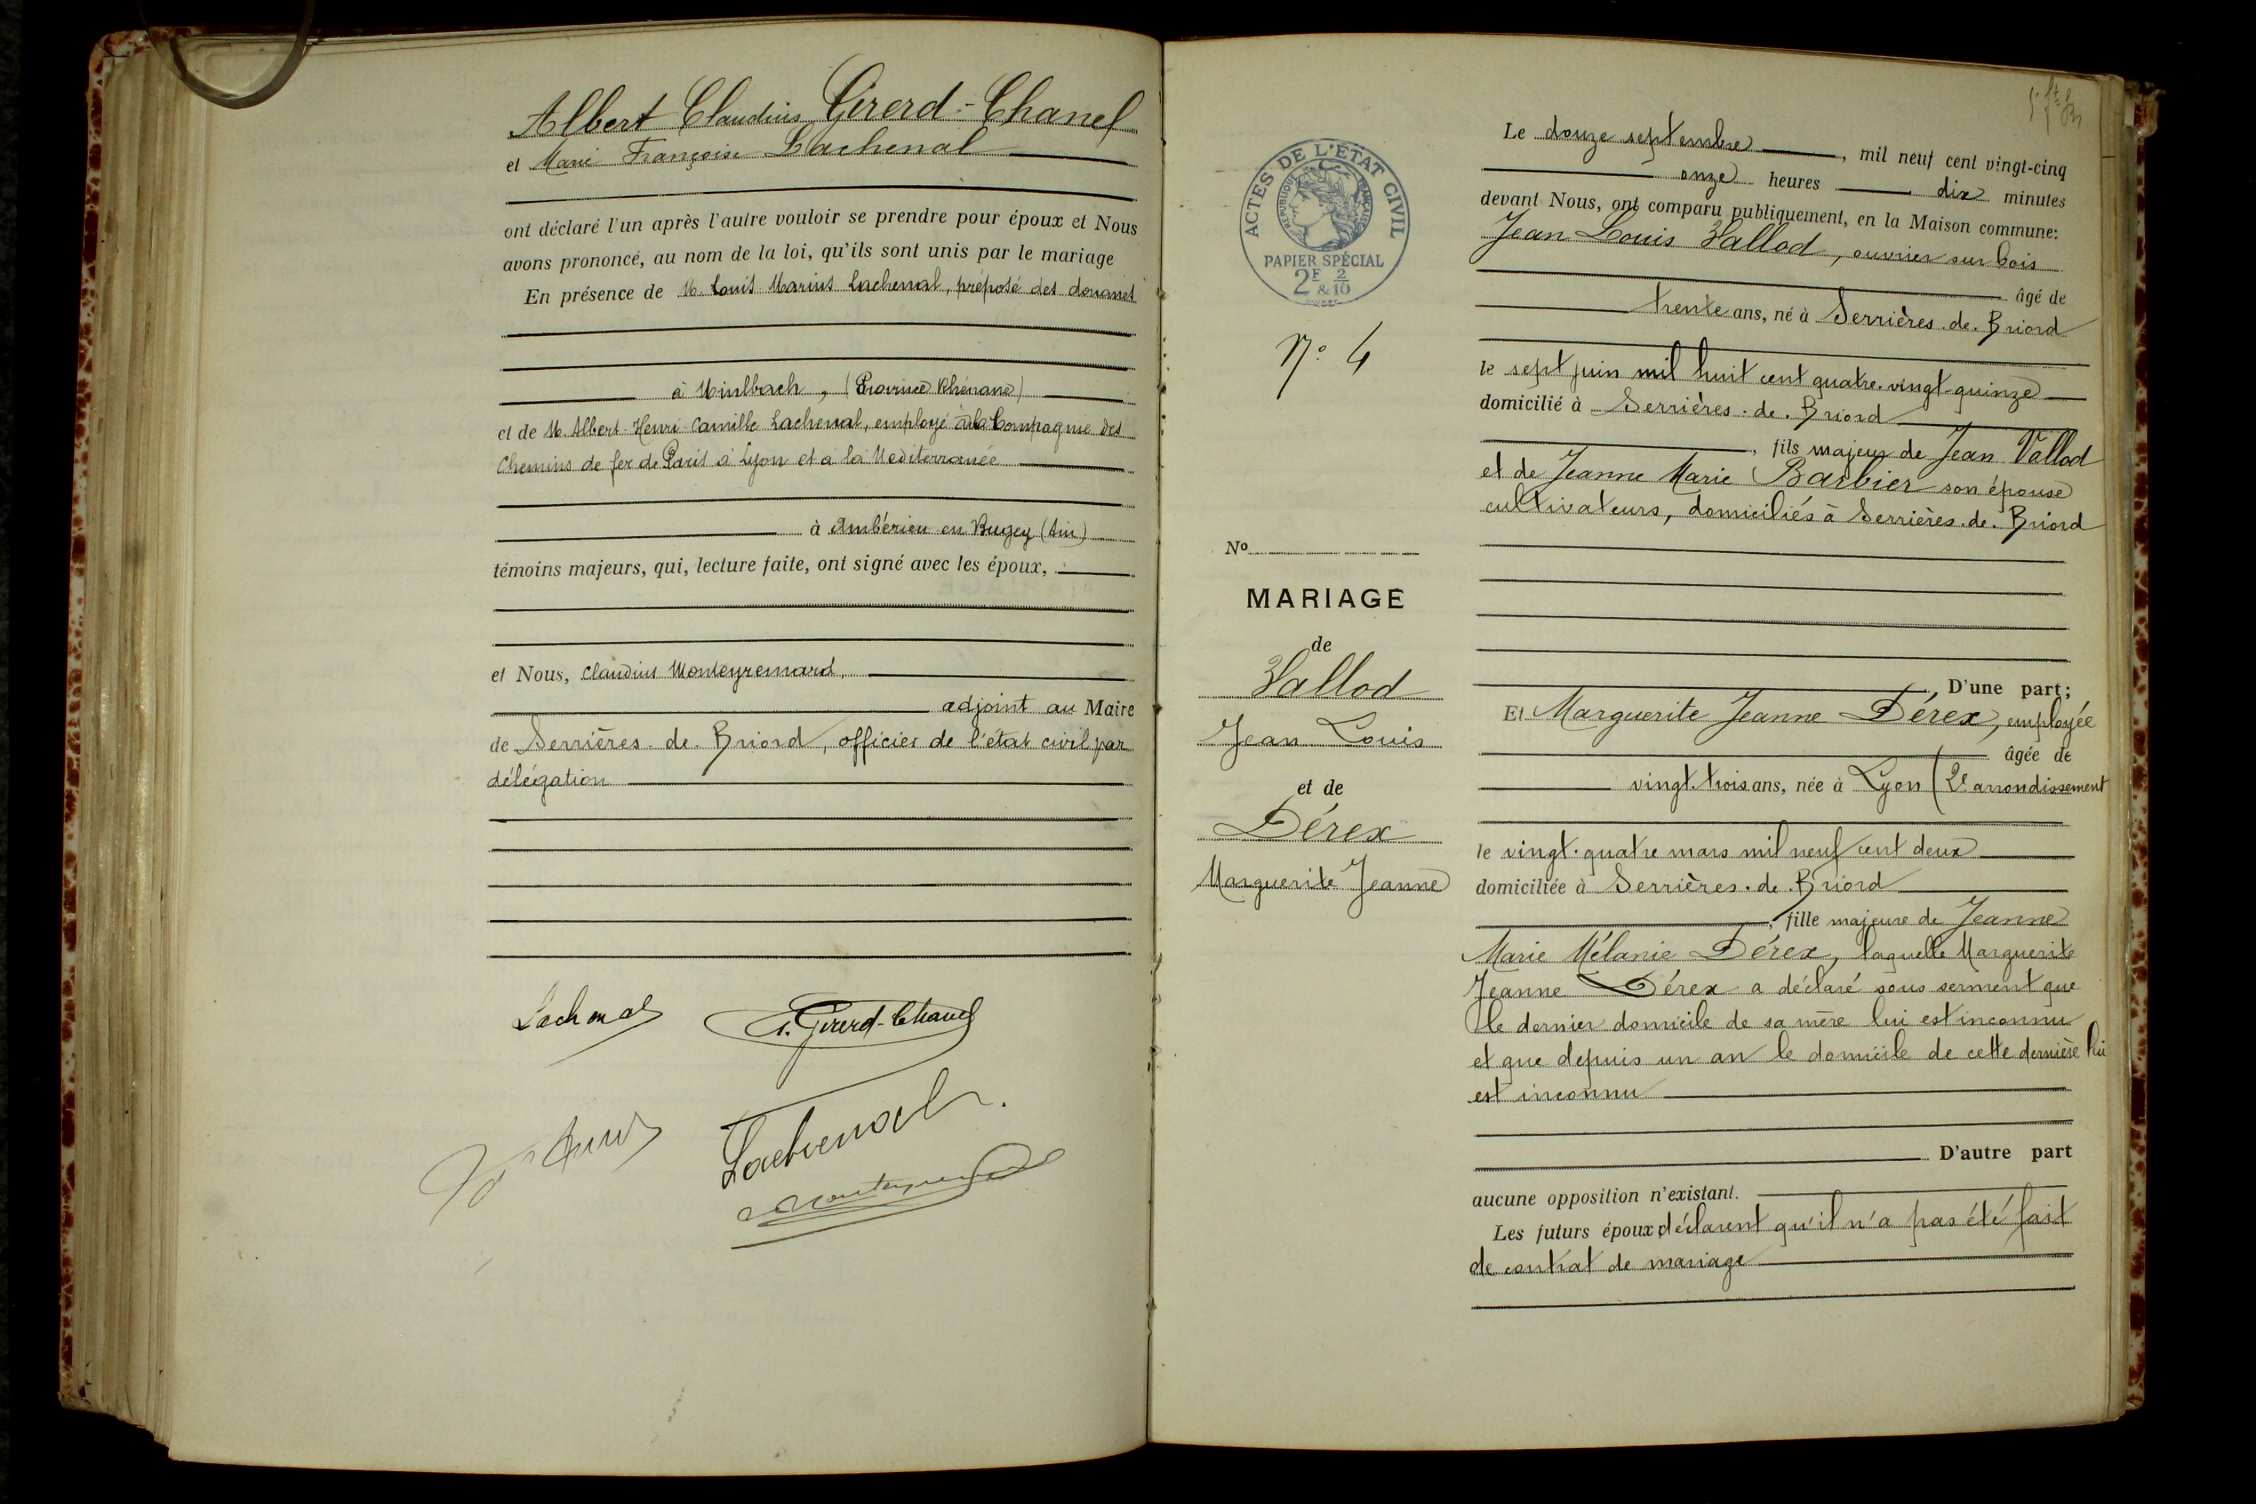 Albert Claudius Girerd-Chanel
et Marie Françoise Lachenal
ont déclaré l'un après l'autre vouloir se prendre pour époux et Nous
avons prononcé, au nom de la loi, qu'ils sont unis par le mariage
En présence de M. Louis Marius Lachenal, préposé des douanes
à (Province Rhénane)
et de M. Albert-Henri-Camille Lachenal, employé à la Compagnie des
Chemins de fer de Paris à Lyon et à la Mediterranée
à Ambérieu en Bugey (Ain)
témoins majeurs, qui, lecture faite, ont signé avec les époux,
et Nous, Claudius Monteyremard,
adjoint au Maire
de Serrières-de-Briord, officier de l'état civil par
délégation
Lachenal A. Girerd-Chanel
Lachenal
Monteyremard
ACTES DE L'ÉTAT CIVIL
RÉPUBLIQUE FRANÇAISE
PAPIER SPÉCIAL
2F & 2/10
N° 4
No
MARIAGE
de
Vallod
Jean Louis
et de
Dérex
Marguerite Jeanne
Le douze septembre, mil neuf cent vingt-cinq
onze heures dix minutes
devant Nous, ont comparu publiquement, en la Maison commune:
Jean Louis Vallod, ouvrier sur bois
âgé de
trente ans, né à Serrières-de-Briord
le sept juin mil huit cent quatre-vingt-quinze
domicilié à Serrières-de-Briord
, fils majeur de Jean Vallod
et de Jeanne Marie Barbier son épouse
cultivateurs, domiciliés à Serrières-de-Briord
D'une part;
Et Marguerite Jeanne Dérex, employée
âgée de
vingt-trois ans, née à Lyon (2e arrondissement
le vingt-quatre mars mil neuf cent deux
domiciliée à Serrières-de-Briord
, fille majeure de Jeanne
Marie Mélanie Dérex, laquelle Marguerite
Jeanne Dérex a déclaré sous serment que
le dernier domicile de sa mère lui est inconnu
et que depuis un an le domicile de cette dernière lui
est inconnu
D'autre part
aucune opposition n'existant.
Les futurs époux déclarent qu'il n'a pas été fait
de contrat de mariage